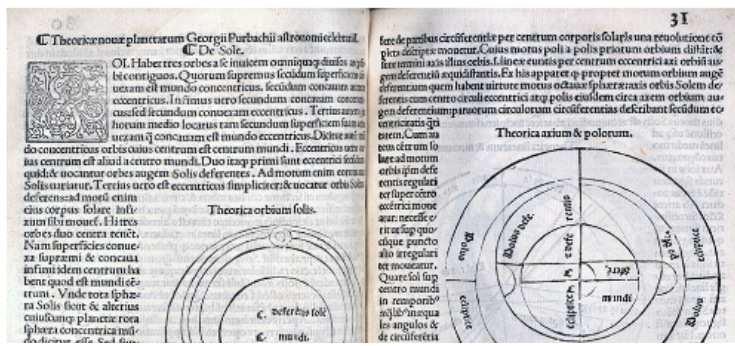 Theoricæ nouæ planetarum Georgii Purbachii astronomi celebratiss.
De Sole.
OL. Habet tres orbes a se inuicem omniquaq diuisos
bicontiguos. Quorum supremus secūdum superficiem
uexam est mundo concentricus. secūdum concauam
eccentricus. Infimus uero secundum concauam
cus: sed secundum conuexam eccentricus. Tertius
horum medio locatus tam secundum superficiem suam
uexam q̄ concauam est mundo eccentricus. Dicitur
do concentricus orbis cuius centrum est centrum mundi. Eccentricus uero
ius centrum est aliud a centro mundi. Duo itaq primi sunt eccentrici
quid: & uocantur orbes augem Solis deferentes. Ad motum enim
Solis uariatur. Tertius uero est eccentricus simpliciter: & uocatur orbis Solem
deferens: ad motū enim
eius corpus solare infi-
xum sibi mouet. Hi tres
orbes duo centra tenēt.
Nam superficies conue-
xa supræmi & concaua
infimi idem centrum ha
bent quod est mundi cē
trum. Vnde tota sphæ-
ra Solis sicut & alterius
cuiuscunq planetæ tota
sphæra concentrica
Theorica orbium solis.
deferētis solē
mundi.
31
fere de partibus circūferentiæ per centrum corporis solaris una reuolutione cō
pleta descriptæ mouetur. Cuius motus poli a polis priorum orbium distāt: &
sunt termini axis illius orbis. Linea
gem deferentiū æquidistantis. Ex his apparet
deferentium quem habent uirtute motus octauæ sphæræ: axis Orbis Solem de-
ferentis cum centro circuli eccentrici atq polis eiusdem circa axem orbium au-
gem deferentium: paruorum circulorum circūferentias describant secūdum ec-
centricitatis
entem. Cum
tem cētrum
lare ad motum
orbis ipsm defe
rentis regulari
ter super cētro
eccētrici moue
atur. necesse e
rit ut sup quo-
cūque puncto
alio irregulari
ter moueatur.
Quare sol sup
centro mundi
in temporib⁹
æq̄lib⁹ inæqua
les angulos &
de circūferētia
Theorica axium & polorum.
Polus
defe.
eclipticæ
Polus
mundi